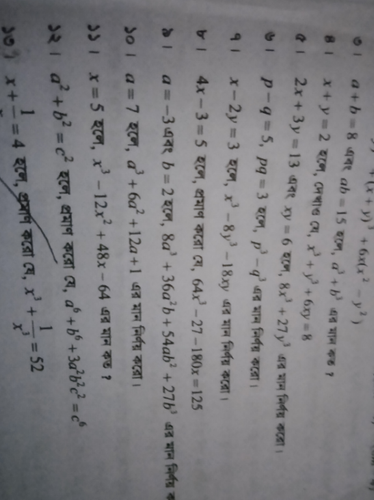 + (x + y)³ + 6x(x² − y²)
৩। a + b = 8 এবং ab = 15 হলে, a³ + b³ এর মান কত ?
৪। x + y = 2 হলে, দেখাও যে, x³ + y³ + 6xy = 8
৫। 2x + 3y = 13 এবং xy = 6 হলে, 8x³ + 27y³ এর মান নির্ণয় করো।
৬। p − q = 5, pq = 3 হলে, p³ − q³ এর মান নির্ণয় করো।
৭। x − 2y = 3 হলে, x³ − 8y³ − 18xy এর মান নির্ণয় করো।
৮। 4x − 3 = 5 হলে, প্রমাণ করো যে, 64x³ − 27 − 180x = 125
৯। a = −3 এবং b = 2 হলে, 8a³ + 36a²b + 54ab² + 27b³ এর মান নির্ণয় ক
১০। a = 7 হলে, a³ + 6a² + 12a + 1 এর মান নির্ণয় করো।
১১। x = 5 হলে, x³ − 12x² + 48x − 64 এর মান কত ?
১২। a² + b² = c² হলে, প্রমাণ করো যে, a⁶ + b⁶ + 3a²b²c² = c⁶
১৩। x + 1/x = 4 হলে, প্রমাণ করো যে, x³ + 1/x³ = 52